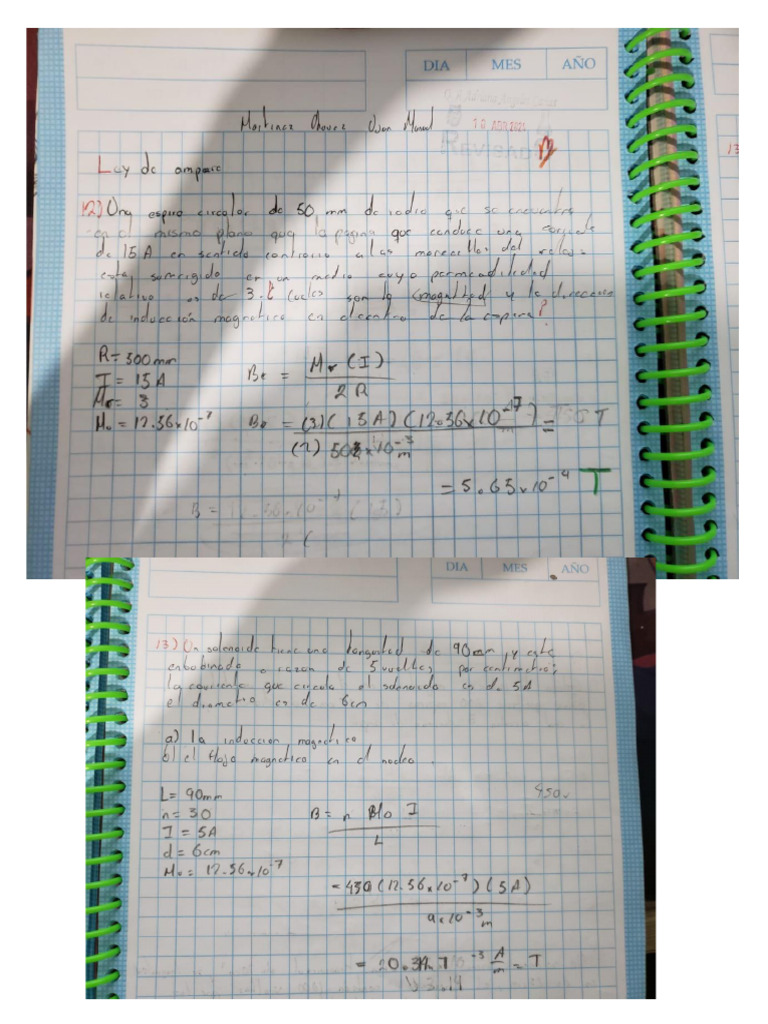 DIA MES AÑO
Martinez Chavez Juan Manuel
Ley de ampere
12) Una espira circular de 50 mm de radio que se encuentra
en el mismo plano que la pagina que conduce una corriente
de 15 A en sentido contrario a las manecillas del reloj
esta sumergido en un medio cuya permeabilidad
relativa es de 3. ¿Cuales son la magnitud y la direccion
de induccion magnetica en el centro de la espira?
R = 500mm
I = 15 A
Mr = 3
Mo = 12.56x10-7
Be = Mr (I)
2 R
Be = (3)(15A)(12.56x10-7) =
(2) 50x10-3 m
= 5.65x10-4 T
DIA MES AÑO
13) Un solenoide tiene una longitud de 90cm, y este
enbobinado a razon de 5 vueltas por centimetro;
la coriente que circula el solenoide es de 5A
el diametro es de 6cm
a) la induccion magnetica
b) el flujo magnetico en el nucleo.
L = 90mm
n = 30
I = 5A
d = 6cm
Mo = 12.56x10-7
B = n Mo I
L
450v
= 450(12.56x10-7)(5A)
9x10-3 m
= T